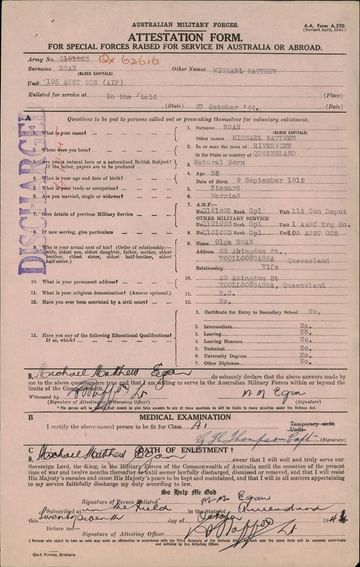 AUSTRALIAN MILITARY FORCES.
A.A. Form A.200
ATTESTATION FORM.
FOR SPECIAL FORCES RAISED FOR SERVICE IN AUSTRALIA OR ABROAD.
Army No. Q101023 QX 62616
Surname EGAN Other Names MICHAEL MATTHEW
(BLOCK CAPITALS)
Unit 105 AUST CCS (AIF)
Enlisted for service at In the Field (Place)
(State) 27 October '44. (Date)
A Questions to be put to persons called out or presenting themselves for voluntary enlistment.
DISCHARGED
1. What is your name? 1. Surname EGAN
(BLOCK CAPITALS)
Other Names MICHAEL MATTHEW
2. Where were you born? 2. In or near the town of RIVERVIEW
in the State or country of QUEENSLAND
3. Are you a natural born or a naturalised British Subject? 3. Natural Born
If the latter, papers are to be produced
4. What is your age and date of birth? 4. Age
Date of Birth 9 September 1912
5. What is your trade or occupation? 5. Steward
6. Are you married, single or widower? 6. Married
7. Give details of previous Military Service 7. A.M.F.
Q101023 Rank Cpl Unit 114 Gen Depot
OTHER MILITARY SERVICE
Q101023 Rank Cpl Unit 1 AAMC Trg Bn.
8. If now serving, give particulars 8. Q101023 Rank Cpl Unit 105 AUST CCS
9. Who is your actual next of kin? (Order of relationship: wife, eldest son, eldest daughter, father, mother, eldest brother, eldest sister, eldest half-brother, eldest half-sister.)
9. Name Olga EGAN
Address 29 Abington St.,
WOOLLOONGABBA Queensland
Relationship Wife
10. What is your permanent address? 10. 29 Abington St.
WOOLLOONGABBA, Queensland
11. What is your religious denomination? (Answer optional) 11. R.C.
12. Have you ever been convicted by a civil court? 12. No.
13. Have you any of the following Educational Qualifications? If so, which?
1. Certificate for Entry to Secondary School No.
2. Intermediate No.
3. Leaving No.
4. Leaving Honours No.
5. Technical No.
6. University Degrees No.
7. Other Diplomas No.
I, Michael Matthew Egan do solemnly declare that the above answers made by me to the above questions are true and that I am willing to serve in the Australian Military Forces within or beyond the limits of the Commonwealth.
M M Egan
(Signature of Attesting Officer) (Signature)
B MEDICAL EXAMINATION
I have examined the above person who I certify to be fit for Class A1
Temporary unfit
Unfit
(Signature)
C OATH OF ENLISTMENT
I, Michael Matthew Egan swear that I will well and truly serve our Sovereign Lord, the King, in the Military Forces of the Commonwealth of Australia until the cessation of the present time of war and twelve months thereafter or until sooner lawfully discharged, dismissed or removed, and that I will resist His Majesty's enemies and cause His Majesty's peace to be kept and maintained, and that I will in all matters appertaining to my service faithfully discharge my duty according to law.
So Help Me God
Signature of Person Enlisted M M Egan
Subscribed at in the field in the State of Queensland
this twenty seventh day of October 1944
Before me—
Signature of Attesting Officer
Govt. Printer, Brisbane